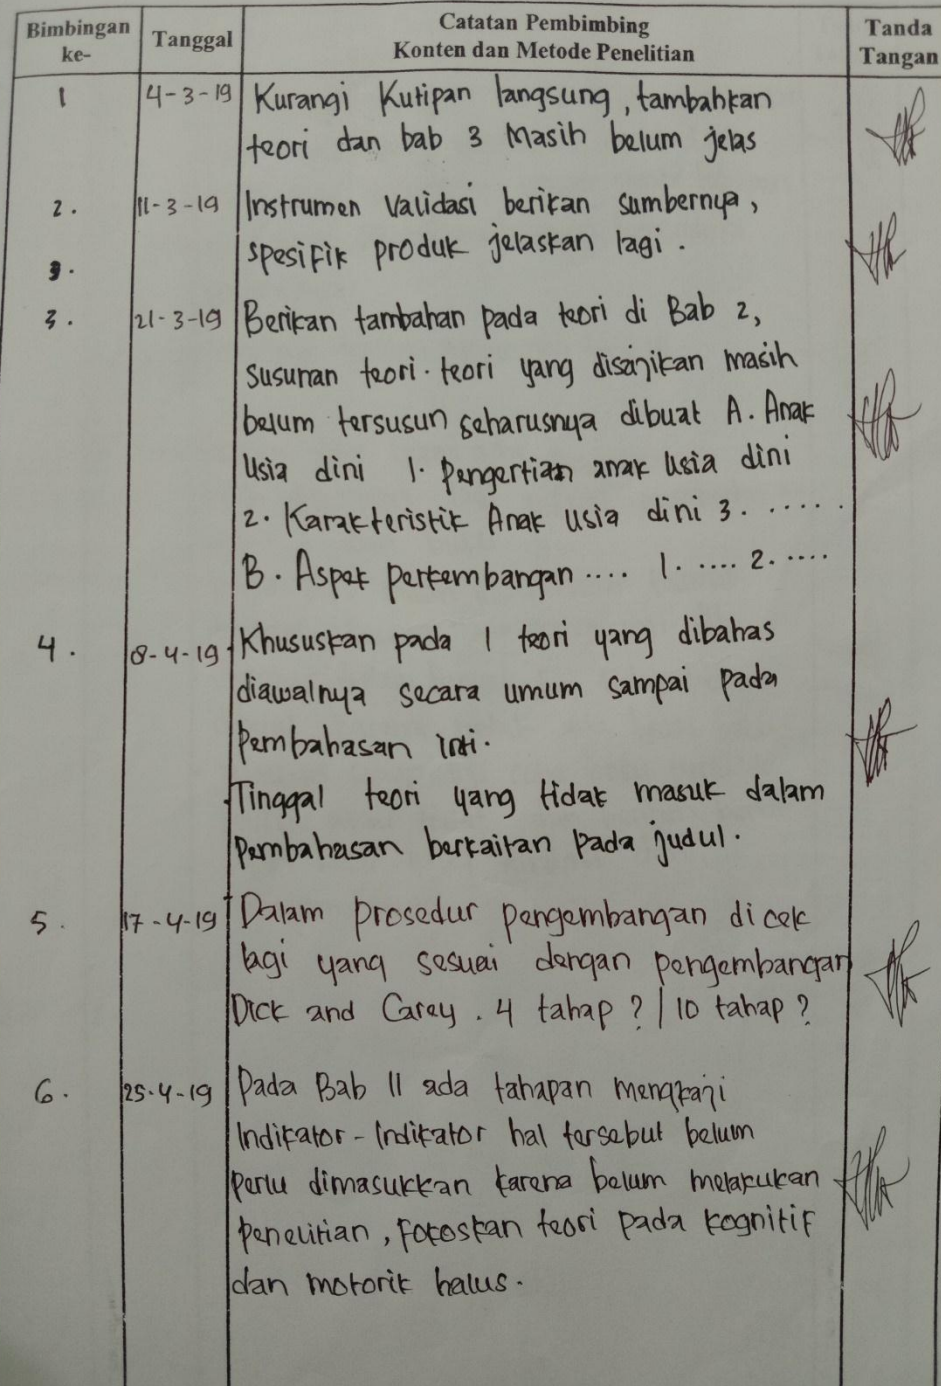 Bimbingan ke-
Tanggal
Catatan Pembimbing
Konten dan Metode Penelitian
Tanda Tangan
1 4-3-19 Kurangi Kutipan langsung, tambahkan
teori dan bab 3 Masih belum jelas
2. 11-3-19 Instrumen Validasi berikan sumbernya,
3. spesifik produk jelaskan lagi.
3. 21-3-19 Berikan tambahan pada teori di Bab 2,
susunan teori-teori yang disajikan masih
belum tersusun seharusnya dibuat A. Anak
Usia dini 1. Pengertian anak Usia dini
2. Karakteristik Anak usia dini 3. ......
B. Aspek perkembangan .... 1. .... 2. ....
4. 8-4-19 Khususkan pada 1 teori yang dibahas
diawalnya secara umum sampai pada
Pembahasan inti.
Tinggal teori yang tidak masuk dalam
Pembahasan berkaitan pada judul.
5. 17-4-19 Dalam prosedur pengembangan di cek
lagi yang sesuai dengan pengembangan
Dick and Carey. 4 tahap? / 10 tahap?
6. 25-4-19 Pada Bab II ada tahapan mengkaji
Indikator-Indikator hal tersebut belum
perlu dimasukkan karena belum melakukan
penelitian, Fokoskan teori pada kognitif
dan motorik halus.